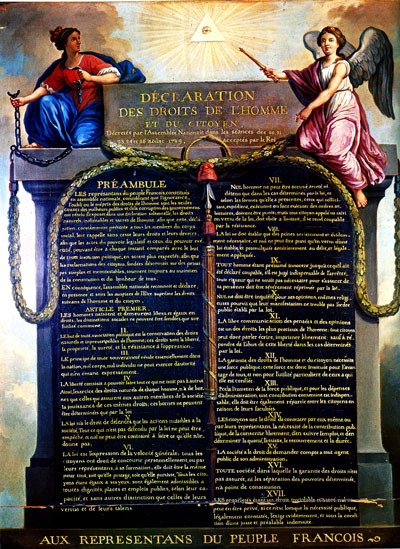 DÉCLARATION
DES DROITS DE L'HOMME
ET DU CITOYEN,
Décretés par l'Assemblée Nationale dans les séances des 20, 21
23, 24 et 26 août 1789, acceptés par le Roi
PRÉAMBULE
LES représentans du peuple François, constitués
en assemblée nationale, considérant que l'ignorance,
l'oubli ou le mépris des droits de l'homme sont les seules
causes des malheurs publics et de la corruption des gouvernemens
ont résolu d'exposer dans une déclaration solemnelle, les droits
naturels, inaliénables et sacrés de l'homme; afin que cette déclaration
constamment présente à tous les membres du corps
social, leur rappelle sans cesse leurs droits et leurs devoirs;
afin que les actes du pouvoir législatif et ceux du pouvoir exécutif,
pouvant être à chaque instant comparés avec le but
de toute institution politique, en soient plus respectés; afin que
les réclamations des citoyens, fondées désormais sur des principes
simples et incontestables, tournent toujours au maintien
de la constitution et du bonheur de tous.
EN conséquence, l'assemblée nationale reconnoit et déclare
en présence et sous les auspices de l'Etre suprême les droits
suivans de l'homme et du citoyen.
ARTICLE PREMIER.
LES hommes naissent et demeurent libres et égaux en
droits, les distinctions sociales ne peuvent être fondées que sur
l'utilité commune.
II.
LE but de toute association politique est la conservation des droits
naturels et imprescriptibles de l'homme; ces droits sont la liberté,
la propriété, la sureté, et la résistance à l'oppression.
III.
LE principe de toute souveraineté réside essentiellement dans
la nation, nul corps, nul individu ne peut exercer d'autorité
qui n'en émane expressément.
IV.
LA liberté consiste à pouvoir faire tout ce qui ne nuit pas à autrui
Ainsi, l'exercice des droits naturels de chaque homme, n'a de bornes
que celles qui assurent aux autres membres de la société
la jouissance de ces mêmes droits; ces bornes ne peuvent
être déterminées que par la loi
V.
LA loi n'a le droit de défendre que les actions nuisibles à la
société. Tout ce qui n'est pas défendu par la loi ne peut être
empêché, et nul ne peut être contraint à faire ce qu'elle n'ordonne
pas.
VI.
LA loi est l'expression de la volonté générale; tous les
citoyens ont droit de concourir personnellement, ou par
leurs représentans, à sa formation; elle doit être la même
pour tous, soit qu'elle protege, soit qu'elle punisse. Tous les citoyens
étant égaux à ses yeux, sont également admissibles à
toutes dignités, places et emplois publics, selon leur capacité,
et sans autres distinction que celles de leurs
vertus et de leurs talens.
VII.
NUL homme ne peut être accusé, arrêté, ni
détenu que dans les cas déterminés par la loi, et
selon les formes qu'elle a prescrites, ceux qui sollicitent,
expédient, exécutent ou font exécuter des ordres arbitraires,
doivent être punis; mais tout citoyen appelé ou saisi
en vertu de la loi, doit obéir à l'instant, il se rend coupable
par la résistance.
VIII.
LA loi ne doit établir que des peines strictement et évidemment
nécessaire, et nul ne peut être puni qu'en vertu d'une
loi établie et promulguée antérieurement au délit, et légalement
appliquée.
IX.
TOUT homme étant présumé innocent jusqu'à ce qu'il ait
été déclaré coupable, s'il est jugé indispensable de l'arrêter,
toute rigueur qui ne seroit pas nécessaire pour s'assurer de sa
personne doit être sévèrement réprimée par la loi.
X.
NUL ne doit être inquiété pour ses opinions, mêmes religieuses
pourvu que leur manifestation ne trouble pas l'ordre
public établi par la loi.
XI.
LA libre communication des pensées et des opinions est
un des droits les plus précieux de l'homme: tout citoyen
peut donc parler, écrire, imprimer librement: sauf à répondre
de l'abus de cette liberté dans les cas déterminés
par la loi.
XII.
LA garantie des droits de l'homme et du citoyen nécessite
une force publique; cette force est donc instituée pour l'avantage
de tous, et non pour l'utilité particuliere de ceux à qui
elle est confiée.
XIII.
POUR l'entretien de la force publique, et pour les dépenses
d'administration, une contribution commune est indispensable;
elle doit être également répartie entre les citoyens en
raison de leurs facultés.
XIV.
LES citoyens ont le droit de constater par eux même ou
par leurs représentans, la nécessité de la contribution publique,
de la consentir librement, d'en suivre l'emploi, et d'en
déterminer la quotité, l'assiette, le recouvrement et la durée.
XV.
LA société a le droit de demander compte à tout agent
public de son administration.
XVI.
TOUTE société, dans laquelle la garantie des droits n'est
pas assurée, ni la séparation des pouvoirs déterminée,
n'a point de constitution.
XVII.
LES propriétés étant un droit inviolable et sacré, nul ne
peut en être privé, si ce n'est lorsque la nécessité publique,
légalement constatée, l'exige évidemment, et sous la condition
d'une juste et préalable indemnité.
AUX REPRESENTANS DU PEUPLE FRANCOIS